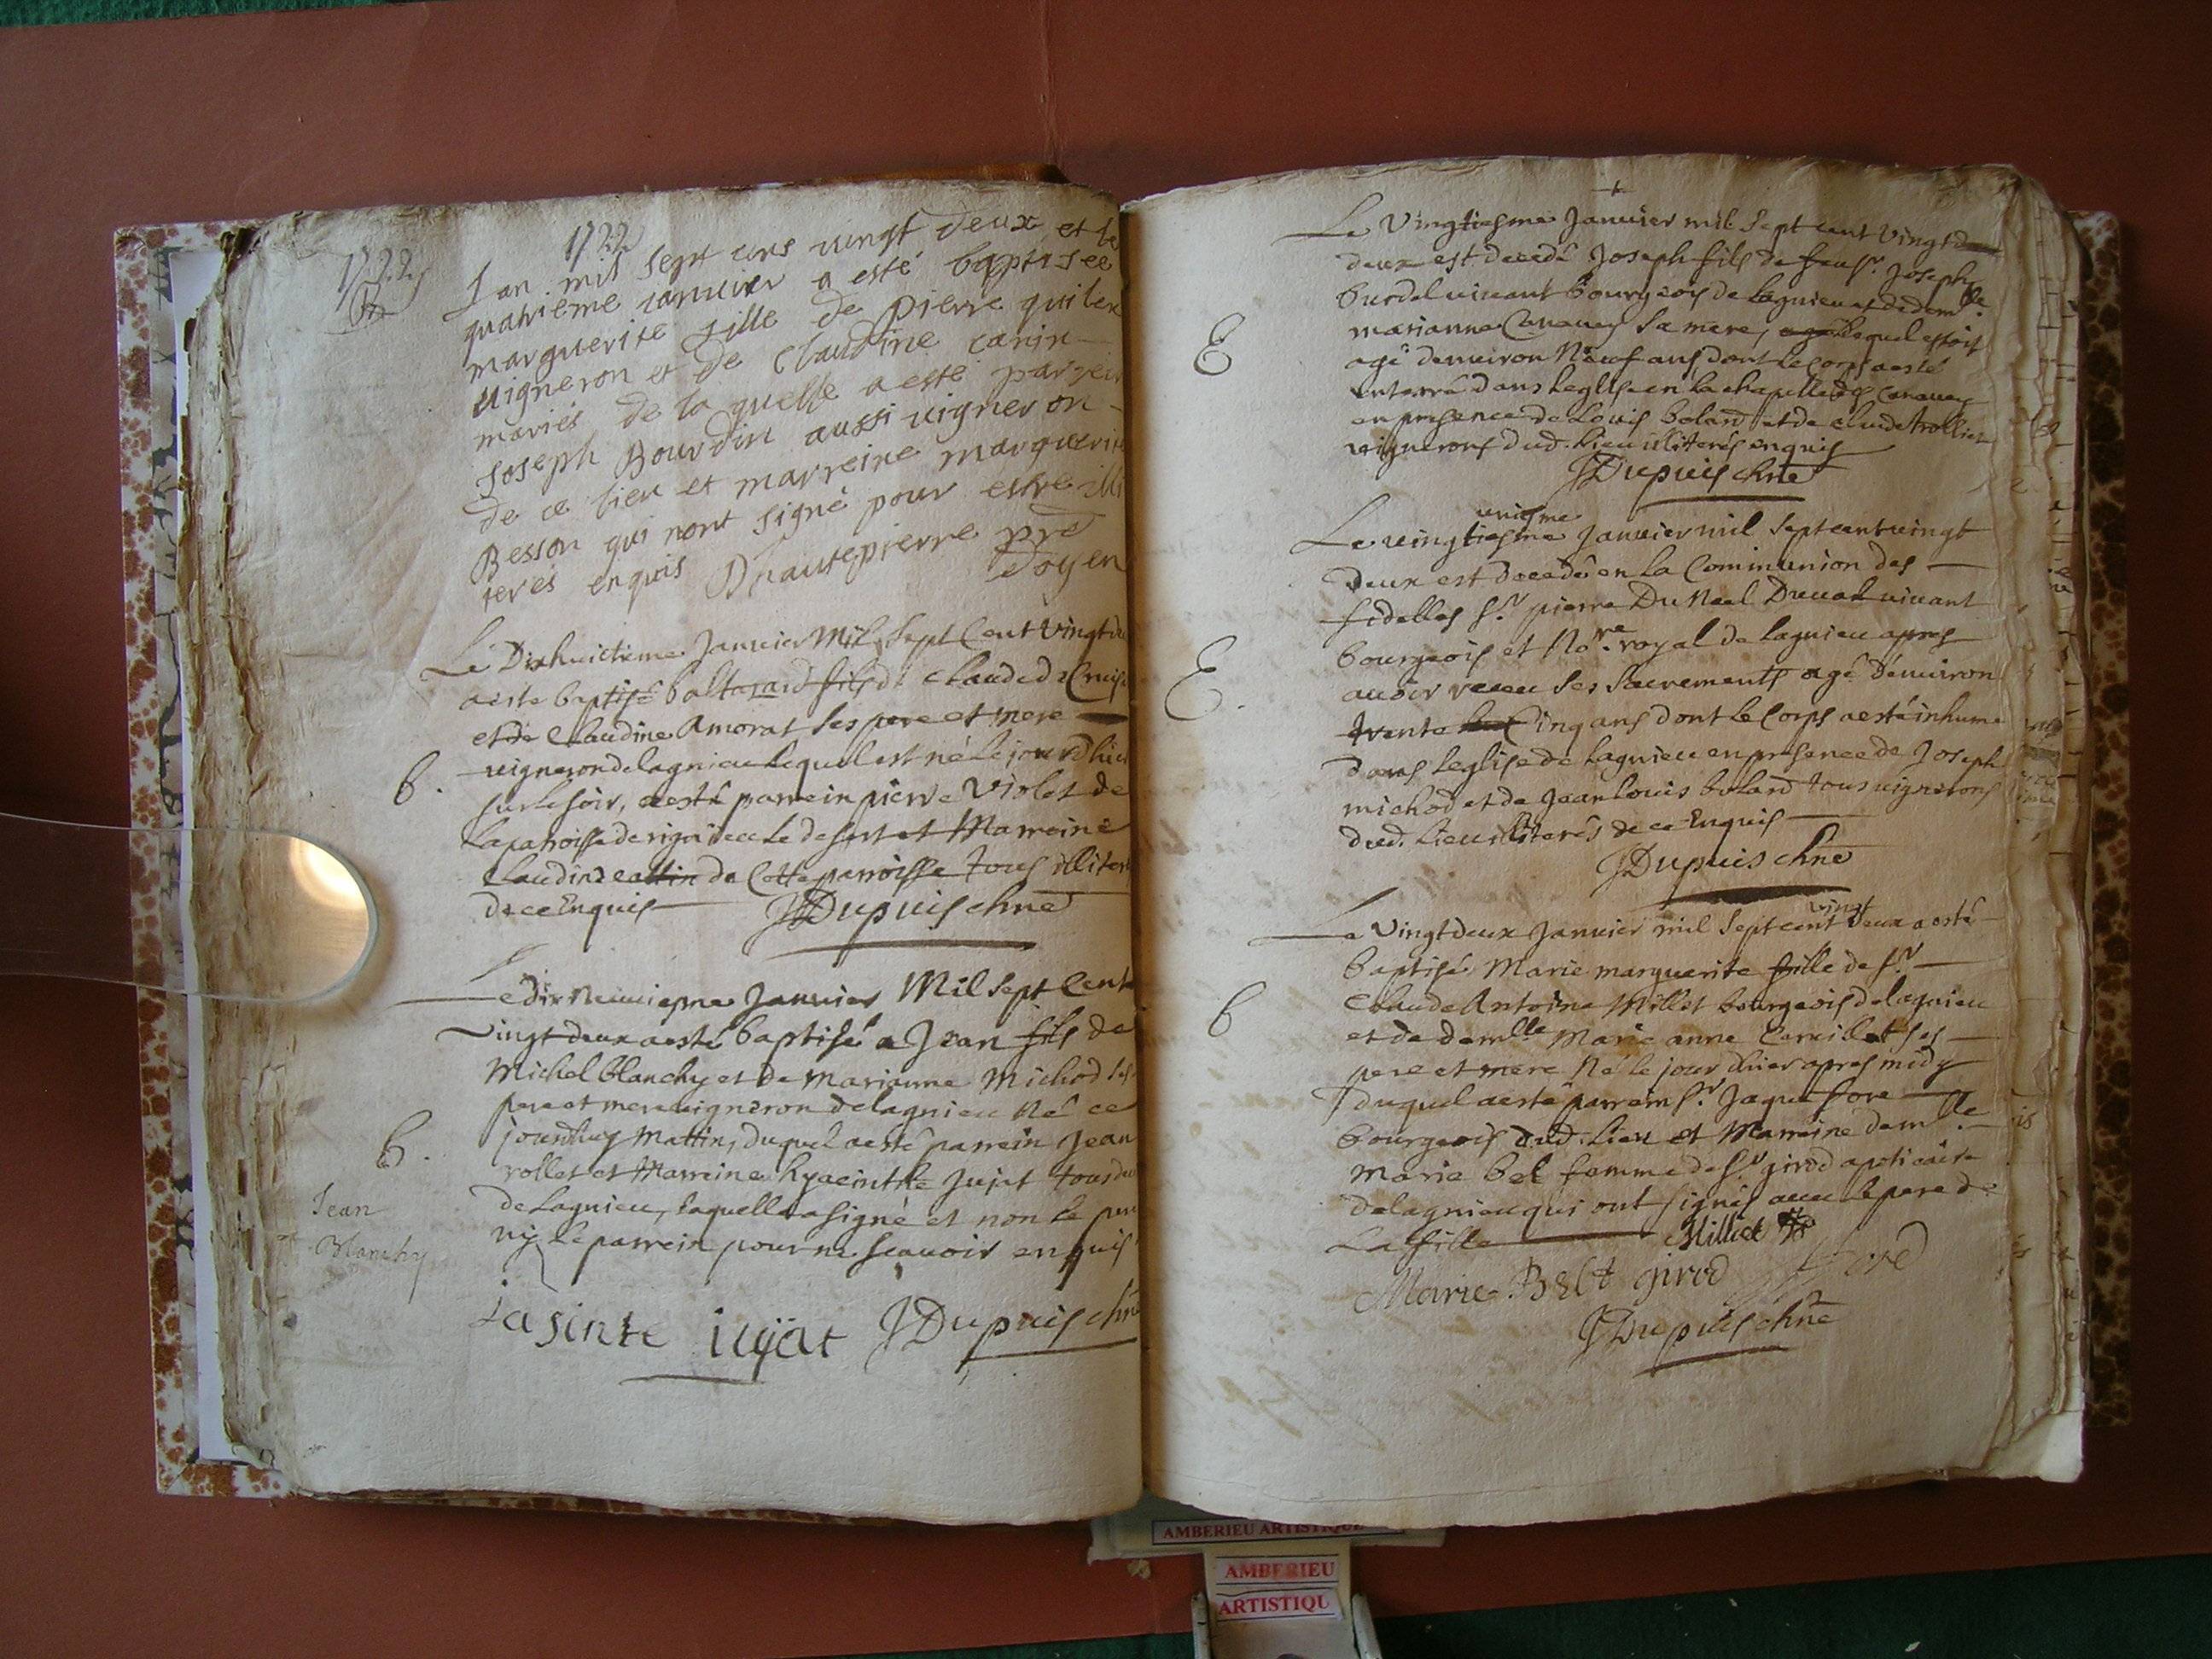 1722
1722
Lan mil sept cens vingt deux et le
quatrieme ianvier a esté baptisee
marguerite fille de pierre quiler
vigneron et de Claudine canin
mariés de la quelle a esté parrein
Joseph Bourdin aussi vigneron
de ce lieu et marreine marguerite
Besson qui nont signé pour estre illi
terés enquis Dhautepierre pre
Doyen
Le Dixhuictieme Janvier Mil Sept Cent Vingt deux
a este baptisé baltazard fils de Claude
et de Claudine Amorat ses pere et mere
vigneron de lagnieu lequel est né le jour dhier
sur le soir, a esté parrein pierre Violet de
la paroisse de rignieu le desert et Marreine
Claudine de Cette parroisse tous illiterés
de ce Enquis JDupuis chne
B.
Le dix neuviesme Janvier Mil Sept Cent
vingt deux a esté baptisé a Jean fils de
Michel blanchy et de Marianne Michod ses
pere et mere vigneron de lagnieu Né ce
jourdhuy Mattin, duquel a esté parrein Jean
rollet et Marreine hyacinthe Jujat tous deux
de Lagnieu, laquelle a signé et non le
ny le parrein pour ne scavoir enquis
B.
Jean
Blanchy
iasinte iujat JDupuis chne
Le Vingtiesme Janvier mil Sept cent vingt
deux est decedé Joseph fils de feu Sr. Joseph
burdel vivant bourgeois de lagnieu et de demlle.
marianne Canavey sa mere, lequel estoit
agé denviron Neuf ans dont le corps a esté
enterré dans leglise en la chapelle des Canavey
en presence de Louis bolard et de claude trolliet
vignerons dud. lieu illiterés enquis
JDupuis chne
E
uniesme
Le vingtiesme Janvier mil Sept cent vingt
deux est decedé en la Communion des
fidelles Sr. pierre Du Neel Druval vivant
bourgeois et Nore. royal de lagnieu apres
avoir receu ses Sacrements agé denviron
trente Cinq ans dont le Corps a esté inhumé
dans leglise de lagnieu en presence de Joseph
michod et de Jean louis bolard tous vignerons
dud. lieu illiterés de ce Enquis
JDupuis chne
E.
vingt
Le Vingt deux Janvier mil Sept cent deux a esté
baptisé Marie marguerite fille de Sr.
Claude Antoine Millet bourgeois de lagnieu
et de demlle Marie anne ses
pere et mere Né le jour dhier apres midy
duquel a esté parrein Sr. Jaque fore
bourgeois dud. lieu et Marreine demlle.
Marie bel femme de Sr. girod apoticaire
de lagnieu qui ont signés avec le pere de
La fille Milliet
Marie Belt girod fore
JDupuis chne
B
AMBERIEU ARTISTIQUE
AMBERIEU
ARTISTIQU